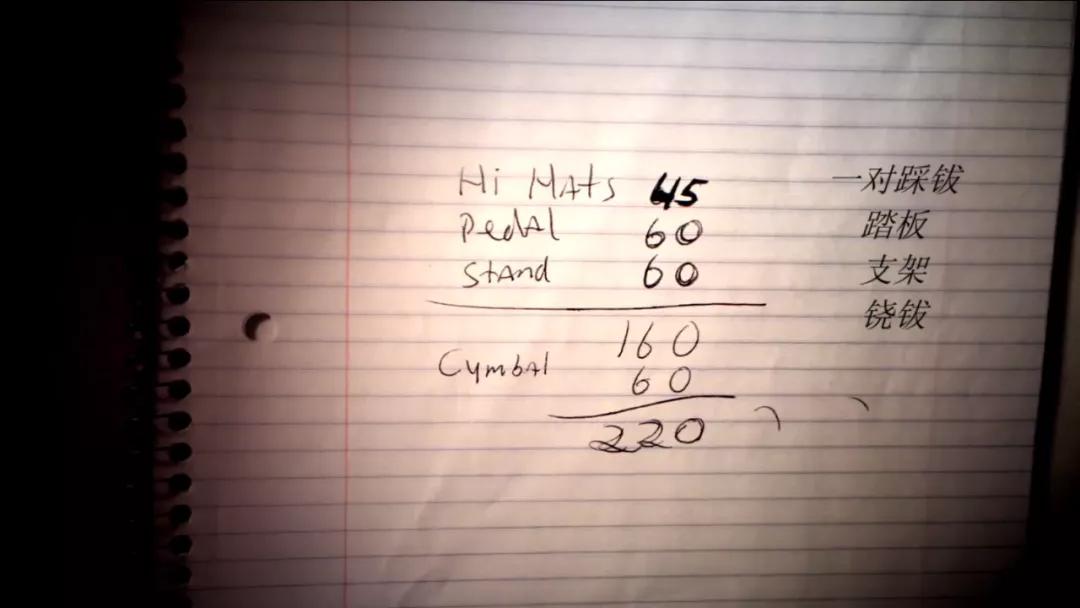 Hi HAts 45 一对踩钹
PedAl 60 踏板
StAnd 60 支架
160 铙钹
CymbAl 60
220